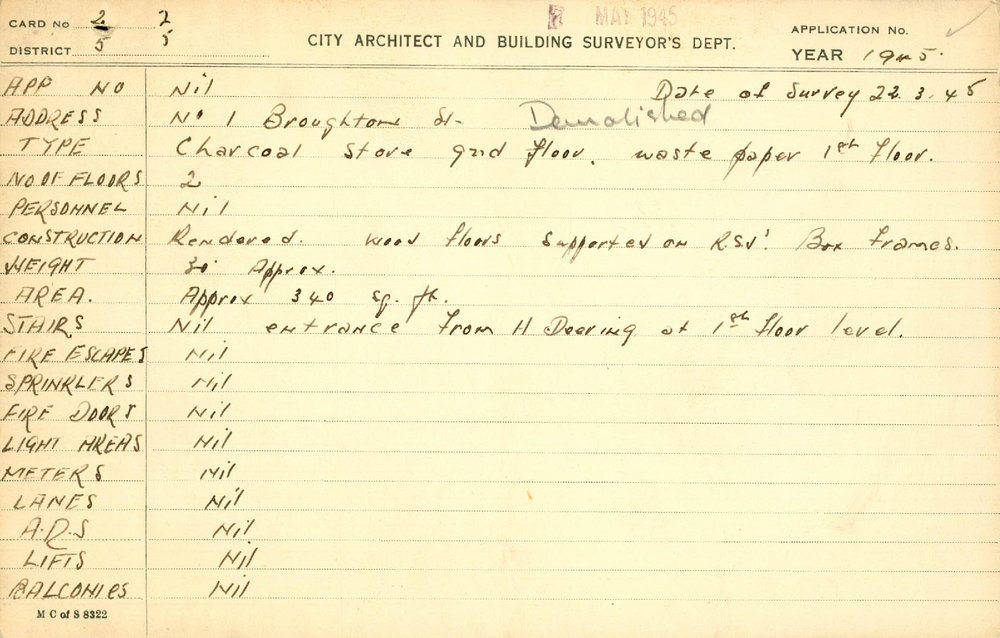 CARD No 2 2
DISTRICT 5 5
7 MAY 1945
CITY ARCHITECT AND BUILDING SURVEYOR'S DEPT.
APPLICATION No.
YEAR 1945.
APP NO Nil Date of Survey 22.3.45
ADDRESS No 1 Broughton St- Demolished
TYPE Charcoal Store gnd floor. waste paper 1st floor.
NO OF FLOORS 2
PERSONNEL Nil
CONSTRUCTION Rendered. wood floors supported on R.S.J's. Box frames.
HEIGHT 30' Approx.
AREA. Approx 340 sq. ft.
STAIRS Nil entrance from H Deering at 1st floor level.
FIRE ESCAPES Nil
SPRINKLERS Nil
FIRE DOORS Nil
LIGHT AREAS Nil
METERS Nil
LANES Nil
A.R.S Nil
LIFTS Nil
BALCONIES Nil
M C of S 8322